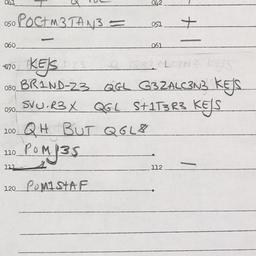 050 POCTM3TAN3 = 051 +
060 — 061 —
070 KEJS
080 BR1ND-Z3 QGL G3ZALC3N3 KEJS
090 SVU.R3X QGL S+1T3R3 KEJS
100 QH BUT QGL8
110 POMJ3S
111 112 —
120 POM1S+AF